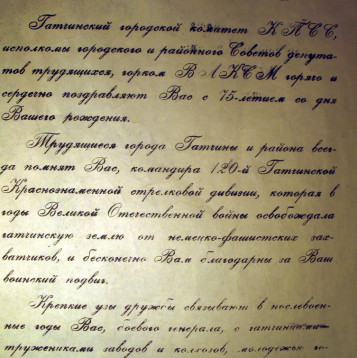 Гатчинский городской комитет КПСС,
исполкомы городского и районного Советов депута-
тов трудящихся, горком ВЛКСМ горячо и
сердечно поздравляют Вас с 75-летием со дня
Вашего рождения.
Трудящиеся города Гатчины и района всег-
да помнят Вас, командира 120-й Гатчинской
Краснознаменной стрелковой дивизии, которая в
годы Великой Отечественной войны освобождала
гатчинскую землю от немецко-фашистских зах-
ватчиков, и бесконечно Вам благодарны за Ваш
воинский подвиг.
Крепкие узы дружбы связывают в послевоен-
ные годы Вас, боевого генерала, с гатчинскими
тружениками заводов и колхозов, молодежью го-